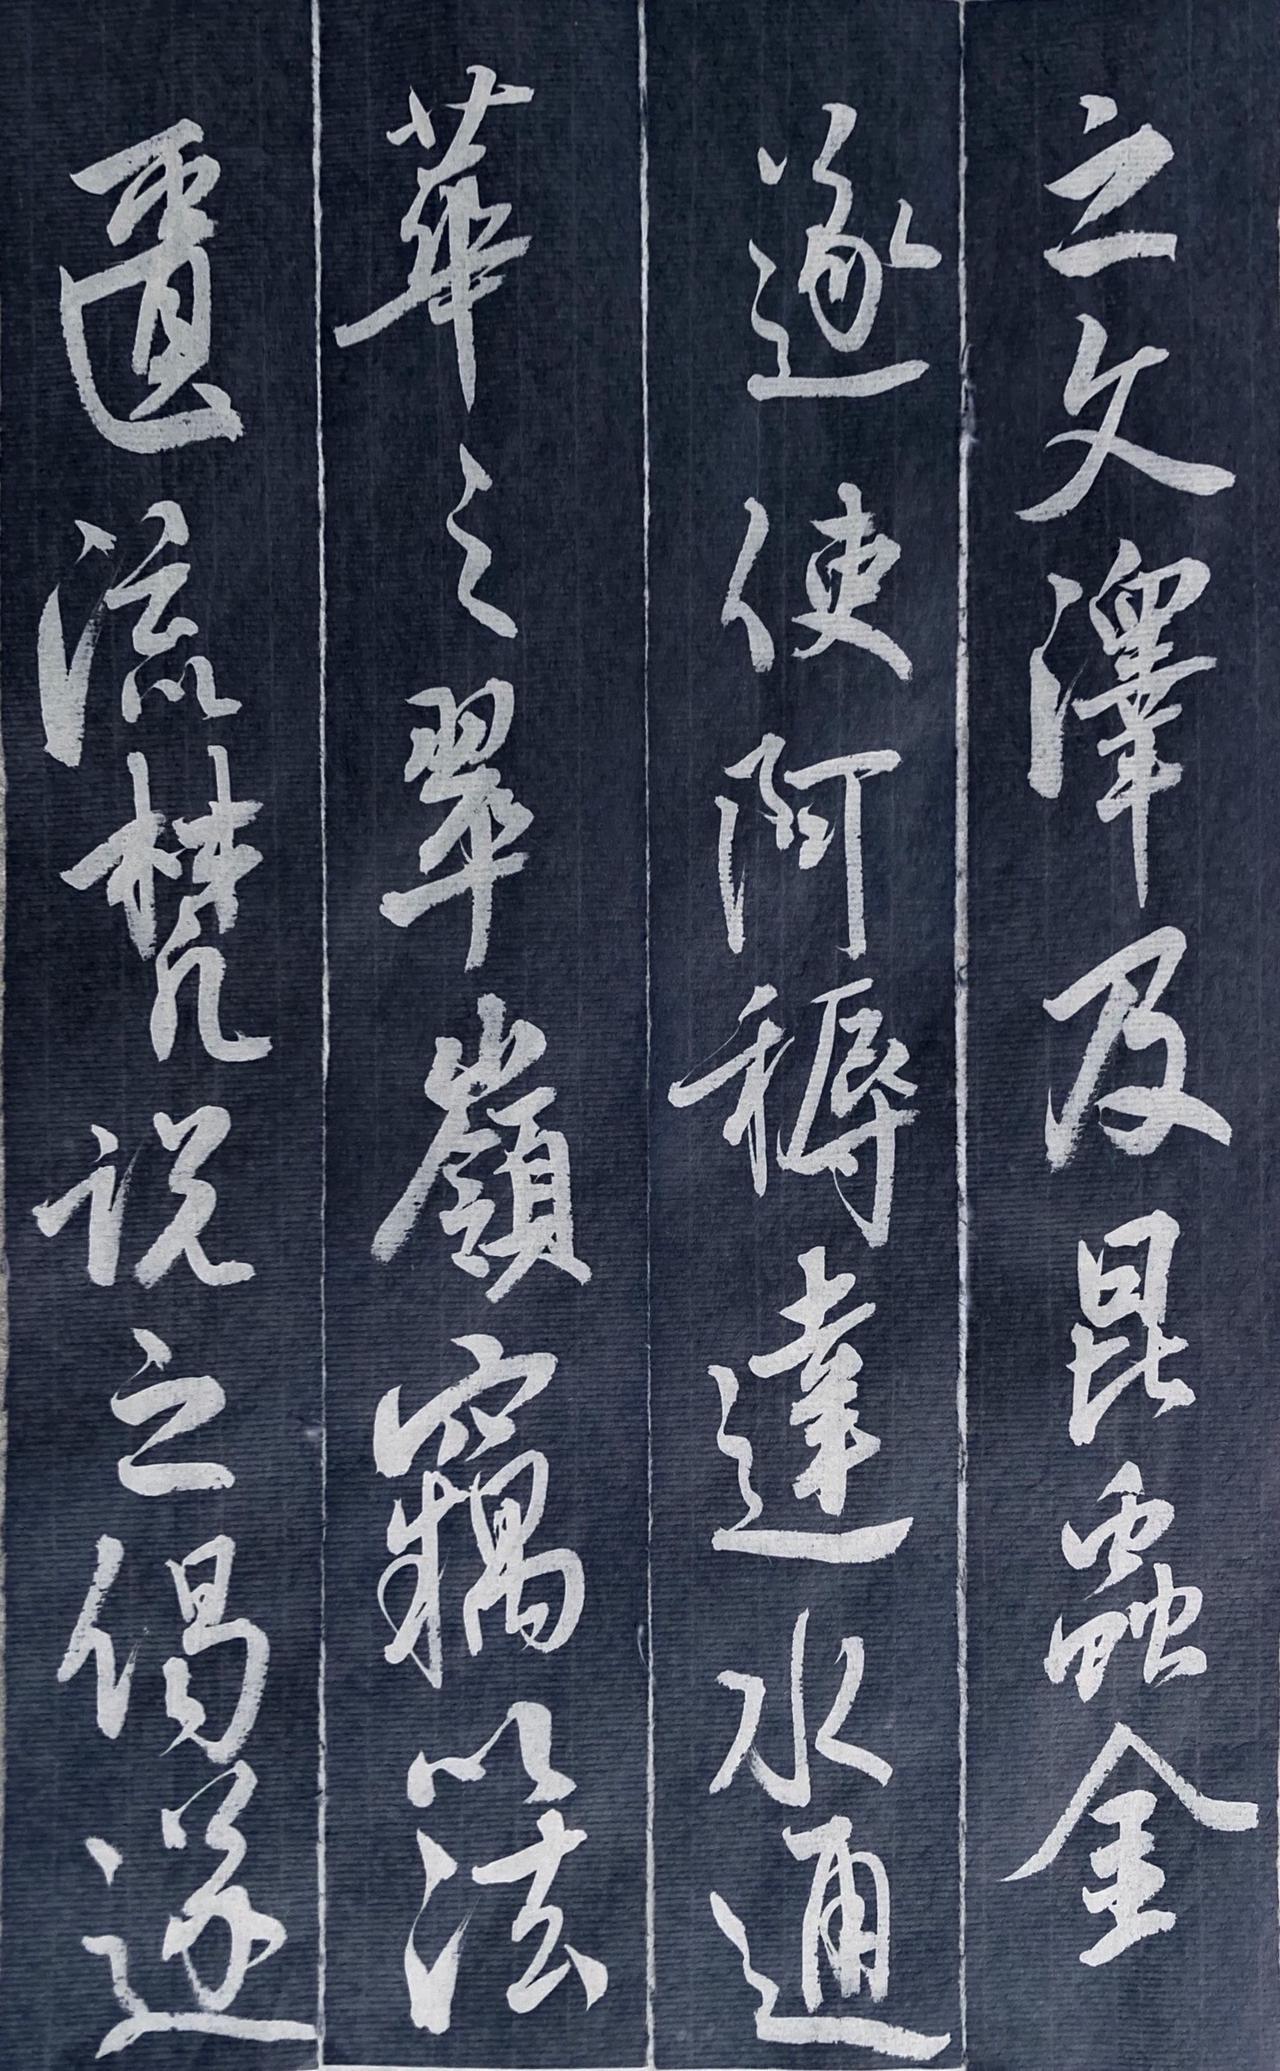 之文澤及昆蟲金
遂使阿耨達水通
華之翠嶺竊以法
匱流梵說之偈遂